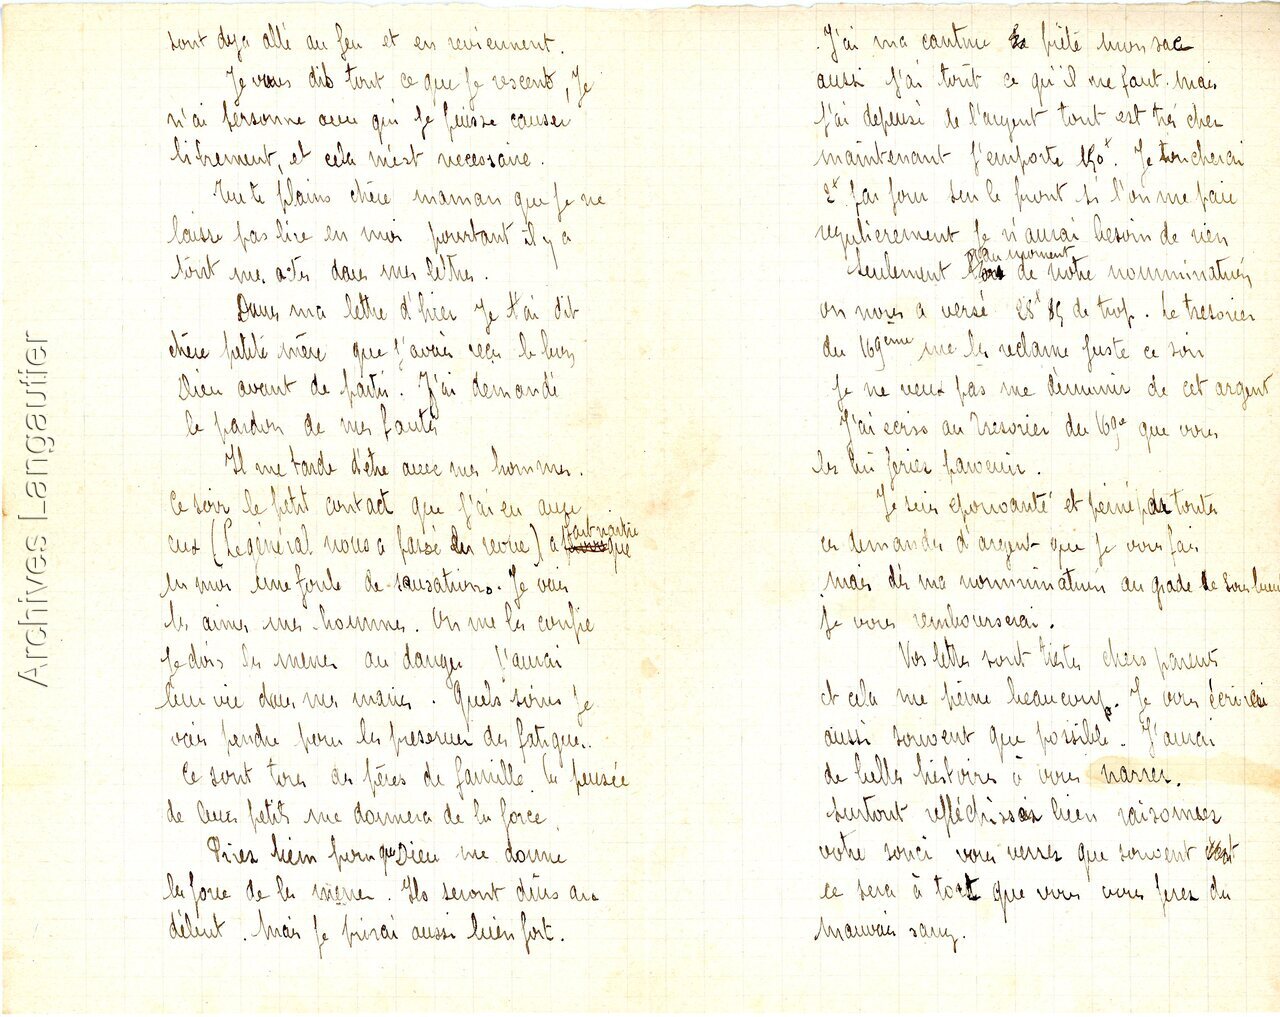 sont deja allé au feu et en reviennent.
Je vous dis tout ce que je rescens, Je
n'ai personne avec qui je puisse causer
librement, et cela m'est necessaire.
Tu te plains chère maman que je ne
laisse pas lire en moi pourtant il y a
tout mes actes dans mes lettres.
Dans ma lettre d'hier Je t'ai dit
chère petite mère que j'avais reçu le bon
Dieu avant de partir. J'ai demandé
le pardon de mes fautes
Il me tarde d'être avec mes hommes.
Ce soir le petit contact que j'ai eu avec
eux (Le général nous a passé en revue) a fait naitre
en moi une foule de sensations. Je vais
les aimer mes hommes. On me les confie
je dois les mener au danger J'aurai
leur vie dans mes mains. Quels soins je
vais prendre pour les preserver des fatigues.
Ce sont tous des pères de famille la pensée
de leurs petits me donnera de la force
Priez bien pour que Dieu me donne
la force de les mener. Ils seront durs au
début. Mais je prirai aussi bien fort.
J'ai ma cantine prête mon sac
aussi j'ai tout ce qu'il me faut. Mais
j'ai depensé de l'argent tout est tré cher
maintenant j'emporte 150f. Je toucherai
2f par jour sur le front si l'on me paie
regulierement je n'aurai besoin de rien
Seulement au moment de notre nomminations
on nous a versé 28f 85 de trop. Le tresorier
du 169ème me les reclame juste ce soir
je ne veux pas me démunir de cet argent
J'ai ecris au Tresorier du 169e que vous
les lui feriez parvenir.
Je suis epouvanté et peiné par toutes
ces demandes d'argent que je vous fais
mais dès ma nomminations au grade de sous lieut
je vous rembourserai.
Vos lettres sont tristes chers parents
et cela me peine beaucoup. Je vous écrirai
aussi souvent que possible. J'aurai
de belles histoires à vous narrer.
Surtout refléchissez bien raisonnez
votre souci vous verrez que souvent
ce sera à tort que vous vous ferez du
mauvais sang.
Archives Langautier